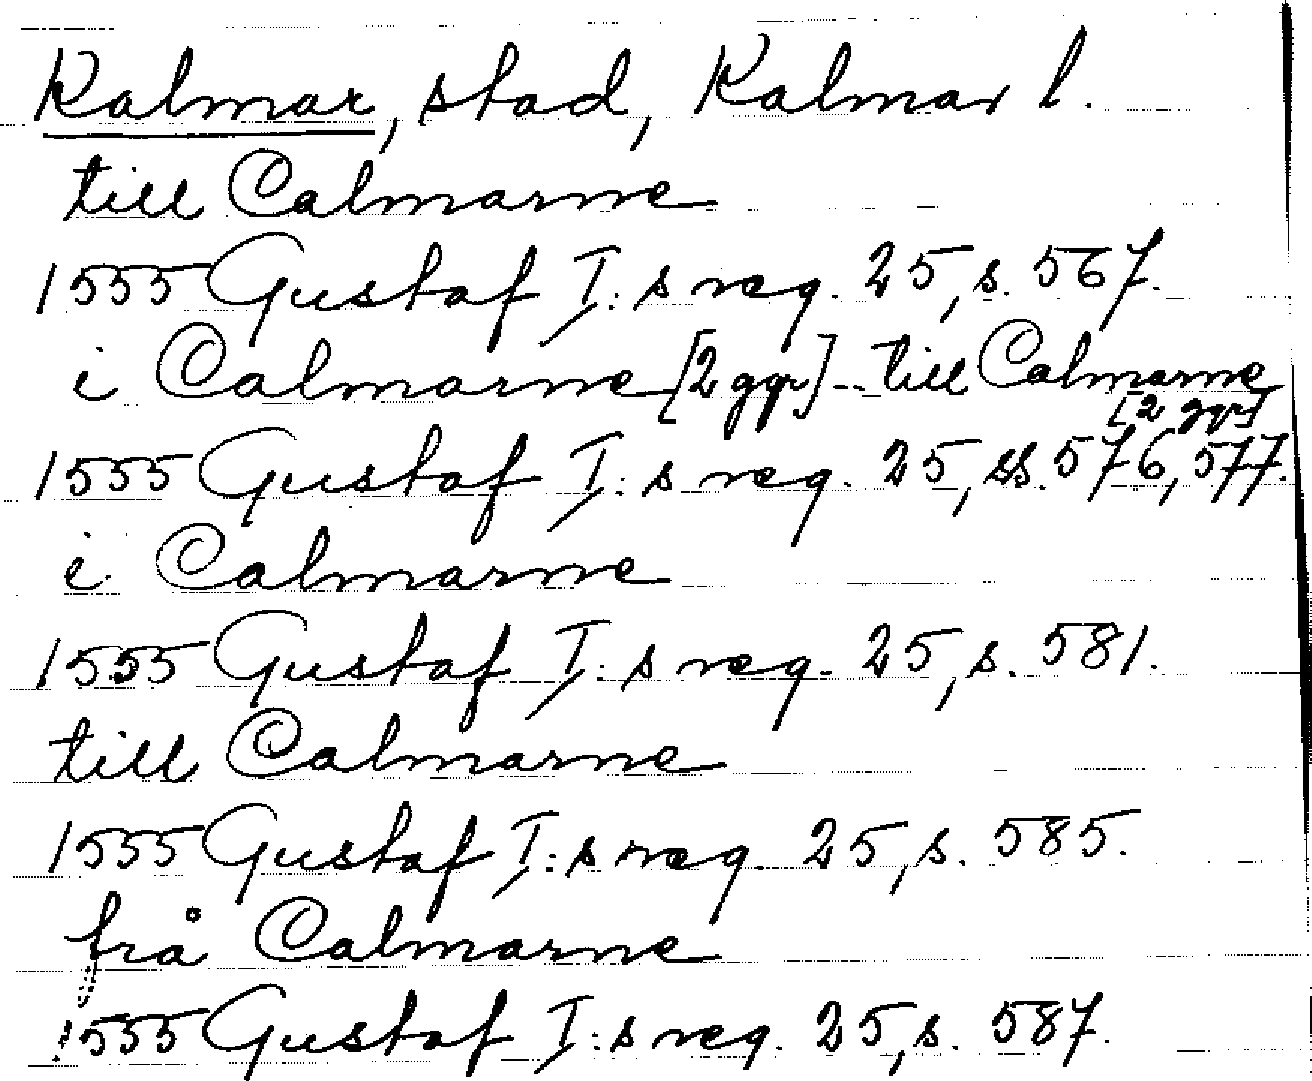 Kalmar, stad, Kalmar l.
till Calmarne
1555 Gustaf I:s reg. 25, s. 567.
i Calmarne [2 ggr] - till Calmarne
[2 ggr]
1555 Gustaf I:s reg. 25, ss. 576, 577.
i Calmarne
1555 Gustaf I:s reg. 25, s. 581.
till Calmarne
1555 Gustaf I:s reg. 25, s. 585.
frå Calmarne
1555 Gustaf I:s reg. 25, s. 587.